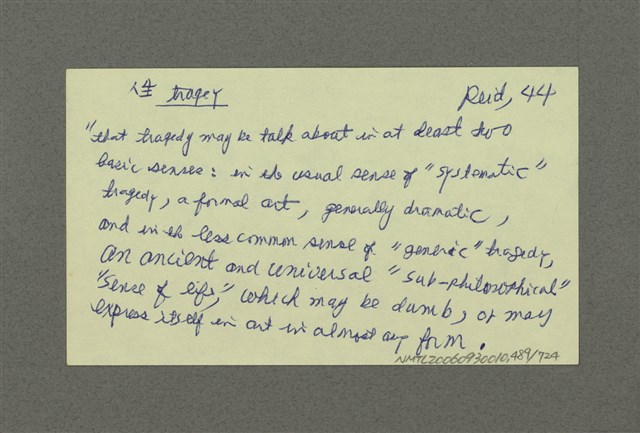 人生 tragey
Reid, 44
"that tragedy may be talk about in at least two
basic senses: in the usual sense of "systematic"
tragedy, a formal art, generally dramatic,
and in the less common sense of "generic" tragedy,
an ancient and universal "sub-philosophical"
"sense of life," which may be dumb, or may
express itself in art in almost any form.
NMTL20060930010,489/724